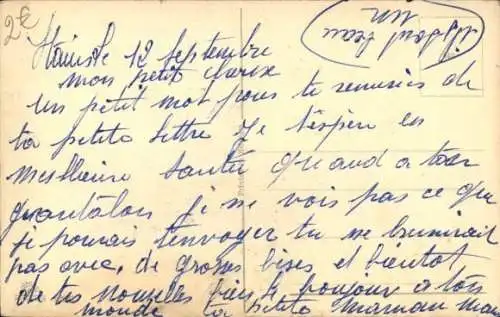 2€
12 Septembre
mon petit
un petit mot pour te remercier de
ta petite lettre Je t'espère en
meilleure santé quand a ton
pantalon je ne vois pas ce que
je pourais t'envoyer tu me
pas avec, de grosses bises et bientot
de tes nouvelles bien le bonjour a tous
monde ta petite Maman